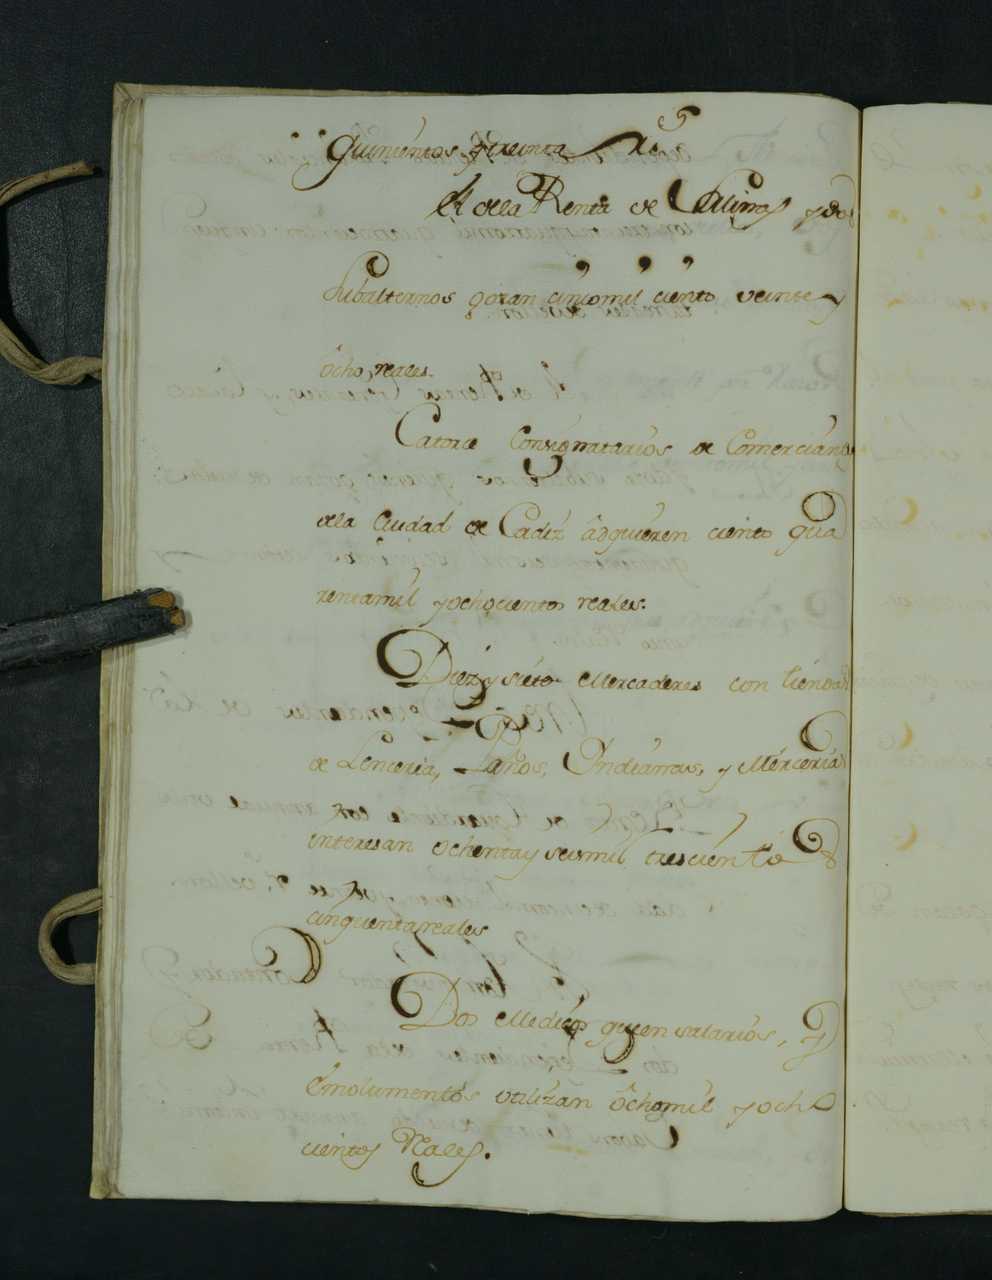 Quinientos, y treinta Rs
El dela Renta de Salinas y dos
Subalternos gozan cincomil ciento veinte y
ôcho, reales.
Catorce Consignatarios de Comerciantes
dela Ciudad de Cadiz âdquieren ciento qua
rentamil y ochocientos reales.
Diez y siete Mercaderes con tiendas
de Lenceria, Paños, Yndianas, y Merceria
interesan ochenta y seismil trescientos
cinquenta reales
Dos Medicos que en salarios, y
Emolumentos utilizan ôchomil y ocho
cientos Reales.